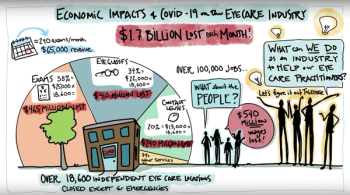 ECONOMIC IMPACTS of COVID-19 ON THE EYECARE INDUSTRY
$1.7 BILLION LOST EACH MONTH!
$65,000 revenue
EXAMS 38%
18,600
$465 MILLION LOST
EYEGLASSES
34%
18,600
CONTACT LENSES
20%
18,600
OVER 100,000 JOBS...
WHAT about the
PEOPLE?
$540
Million
wages
lost!
WHAT CAN WE DO
AS AN INDUSTRY
TO HELP OUR EYE
CARE PRACTITIONERS?
Let's figure it out TOGETHER!
OVER 18,600 INDEPENDENT EYE CARE LOCATIONS
CLOSED EXCEPT for EMERGENCIES